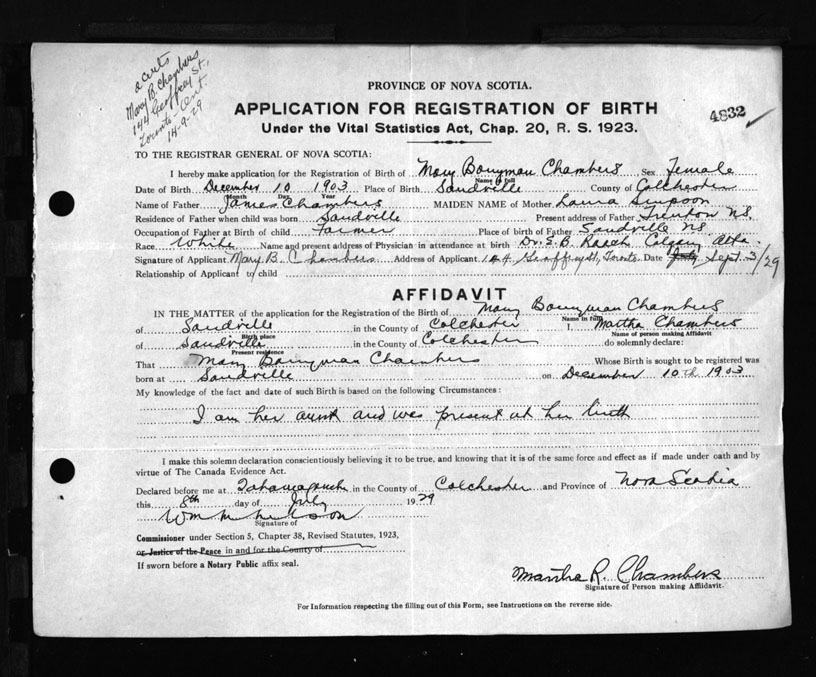 a certs
Mary B. Chambers
144 Geoffrey St,
Toronto - Ont.
14-9-29
4832
PROVINCE OF NOVA SCOTIA.
APPLICATION FOR REGISTRATION OF BIRTH
Under the Vital Statistics Act, Chap. 20, R. S. 1923.
TO THE REGISTRAR GENERAL OF NOVA SCOTIA:
I hereby make application for the Registration of Birth of Mary Bonyman Chambers Sex Female
Name in full
Date of Birth December 10 1903 Place of Birth Sandville County of Colchester
Month Day Year
Name of Father James Chambers MAIDEN NAME of Mother Laura Simpson
Residence of Father when child was born Sandville Present address of Father Trenton N.S.
Occupation of Father at Birth of child Farmer Place of birth of Father Sandville N.S.
Race White Name and present address of Physician in attendance at birth Dr. E. B. Roach Calgary Alta.
Signature of Applicant Mary B. Chambers Address of Applicant 144 Geoffrey St, Toronto Date July Sept. 3/29
Relationship of Applicant to child
AFFIDAVIT
IN THE MATTER of the application for the Registration of the Birth of Mary Bonyman Chambers
Name in Full
of Sandville in the County of Colchester I, Martha Chambers
Birth place Name of person making Affidavit
of Sandville in the County of Colchester do solemnly declare:
Present residence
That Mary Bonyman Chambers Whose Birth is sought to be registered was
born at Sandville on December 10th 1903
My knowledge of the fact and date of such Birth is based on the following Circumstances:
I am her aunt and was present at her birth
I make this solemn declaration conscientiously believing it to be true, and knowing that it is of the same force and effect as if made under oath and by
virtue of The Canada Evidence Act.
Declared before me at Tatamagouche in the County of Colchester and Province of Nova Scotia
this 8th day of July 1929
Wm M Nelson
Signature of
Commissioner under Section 5, Chapter 38, Revised Statutes, 1923,
or Justice of the Peace in and for the County of
If sworn before a Notary Public affix seal.
Martha R. Chambers
Signature of Person making Affidavit.
For Information respecting the filling out of this Form, see Instructions on the reverse side.